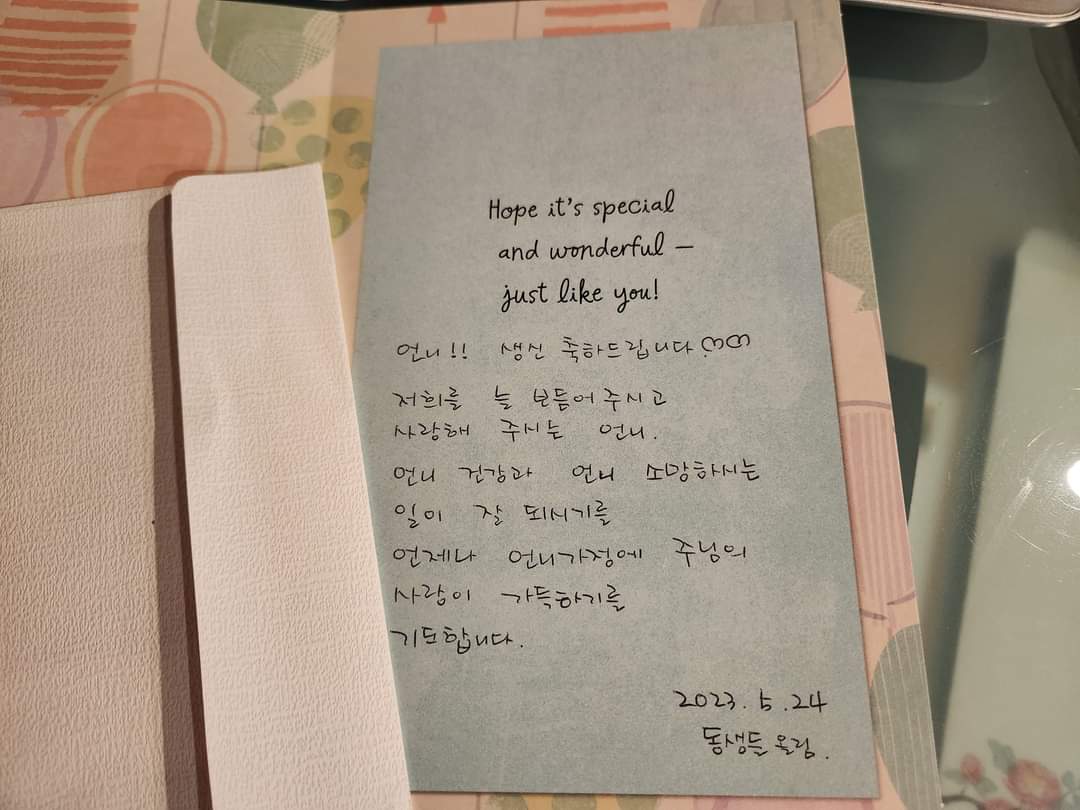 Hope it's special
and wonderful —
just like you!
언니!! 생신 축하드립니다♡♡
저희를 늘 보듬어주시고
사랑해 주시는 언니.
언니 건강과 언니 소망하시는
일이 잘 되시기를
언제나 언니가정에 주님의
사랑이 가득하기를
기도합니다.
2023. 5. 24
동생들 올림.